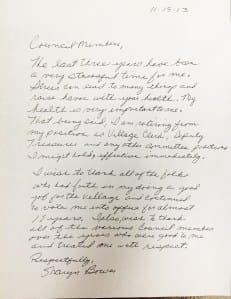 11-15-13
Council Members,
The last three years have been
a very stressful time for me.
Stress can lead to many things and
cause havoc with your health. My
health is very important to me.
That being said, I am retiring from
my position as Village Clerk, Deputy
Treasurer and any other committee positions
I might hold, effective immediately.
I wish to thank all of the folks
who had faith in my doing a good
job for the Village and continued
to vote me into office for almost
19 years. I also wish to thank
all of the various Council members
over the years who were good to me
and treated me with respect.
Respectfully,
Bowes